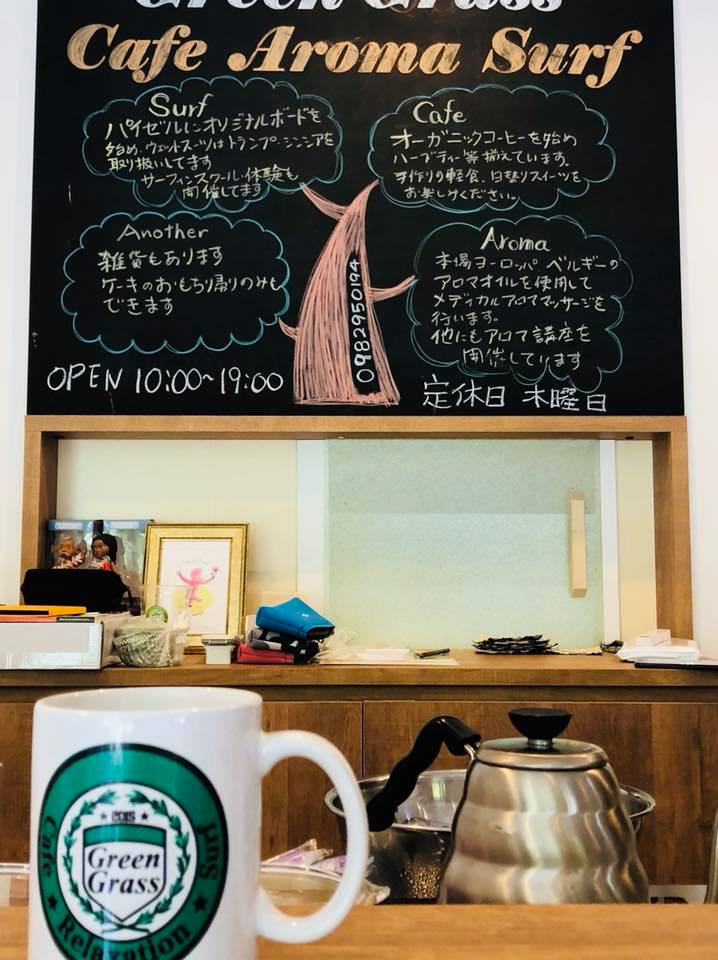 Green Grass
Cafe Aroma Surf
Surf
パイゼルﾙにオリジナルボードを
始め、ウェットスーツはトランプ・シンシアを
取り扱いしてます
サーフィンスクール・体験も
開催してます
Cafe
オーガニックコーヒーを始め
ハーブティー等揃えています。
手作りの軽食、日替りスイーツを
お楽しみください。
Another
雑貨もあります
ケーキのおもち帰りのみも
できます
Aroma
本場ヨーロッパ、ベルギーの
アロマオイルを使用して
メディカルアロママッサージを
行います。
他にもアロマ講座を
開催しています
0982950194
OPEN 10:00~19:00
定休日 木曜日
2015
Green
Grass
Cafe Relaxation Surf